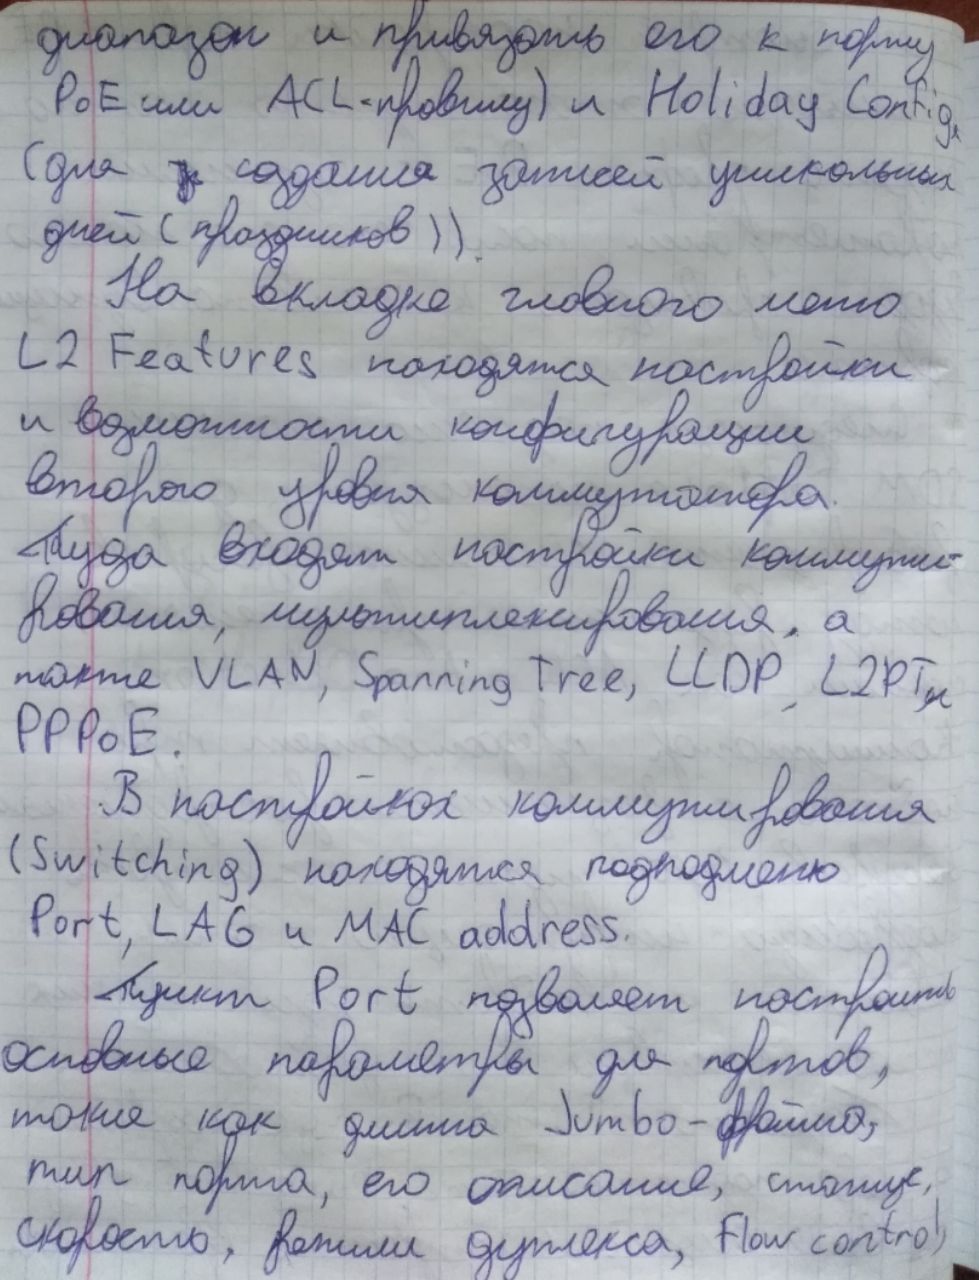 диапазон и привязать его к порту
PoE или ACL-правилу) и Holiday Config
(для создания записей уникальных
дней (праздников)).
На вкладке главного меню
L2 Features находятся настройки
и возможности конфигурации
второго уровня коммутатора.
Туда входят настройки коммути-
рования, мультиплексирования, а
также VLAN, Spanning Tree, LLDP, L2PT и
PPPoE.
В настройках коммутирования
(Switching) находятся подподменю
Port, LAG и MAC address.
Пункт Port позволяет настроить
основные параметры для портов,
такие как длина Jumbo-фрейма,
тип порта, его описание, статус,
скорость, режим дуплекса, Flow control,